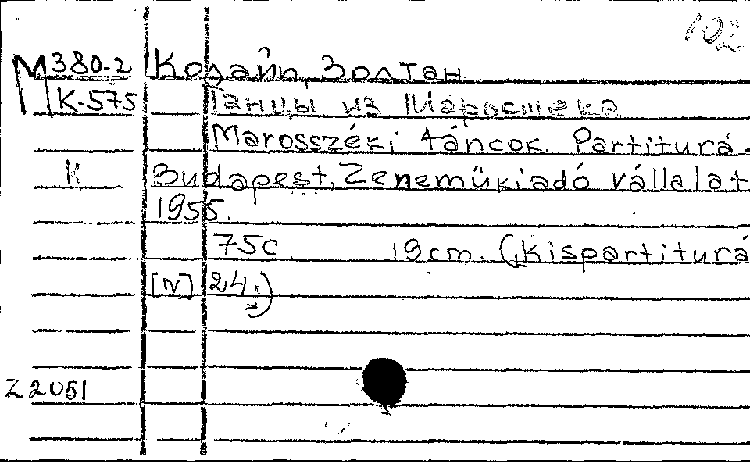 102
M380-2 Кодайи, Золтан.
К-575 Танцы из Марошсека
Marosszéki táncok. Partiturá-
К Budapest, Zenemükiadó vállalat
1955.
75с 19cm. (Kispartiturá
[N] 24.)
Z2051